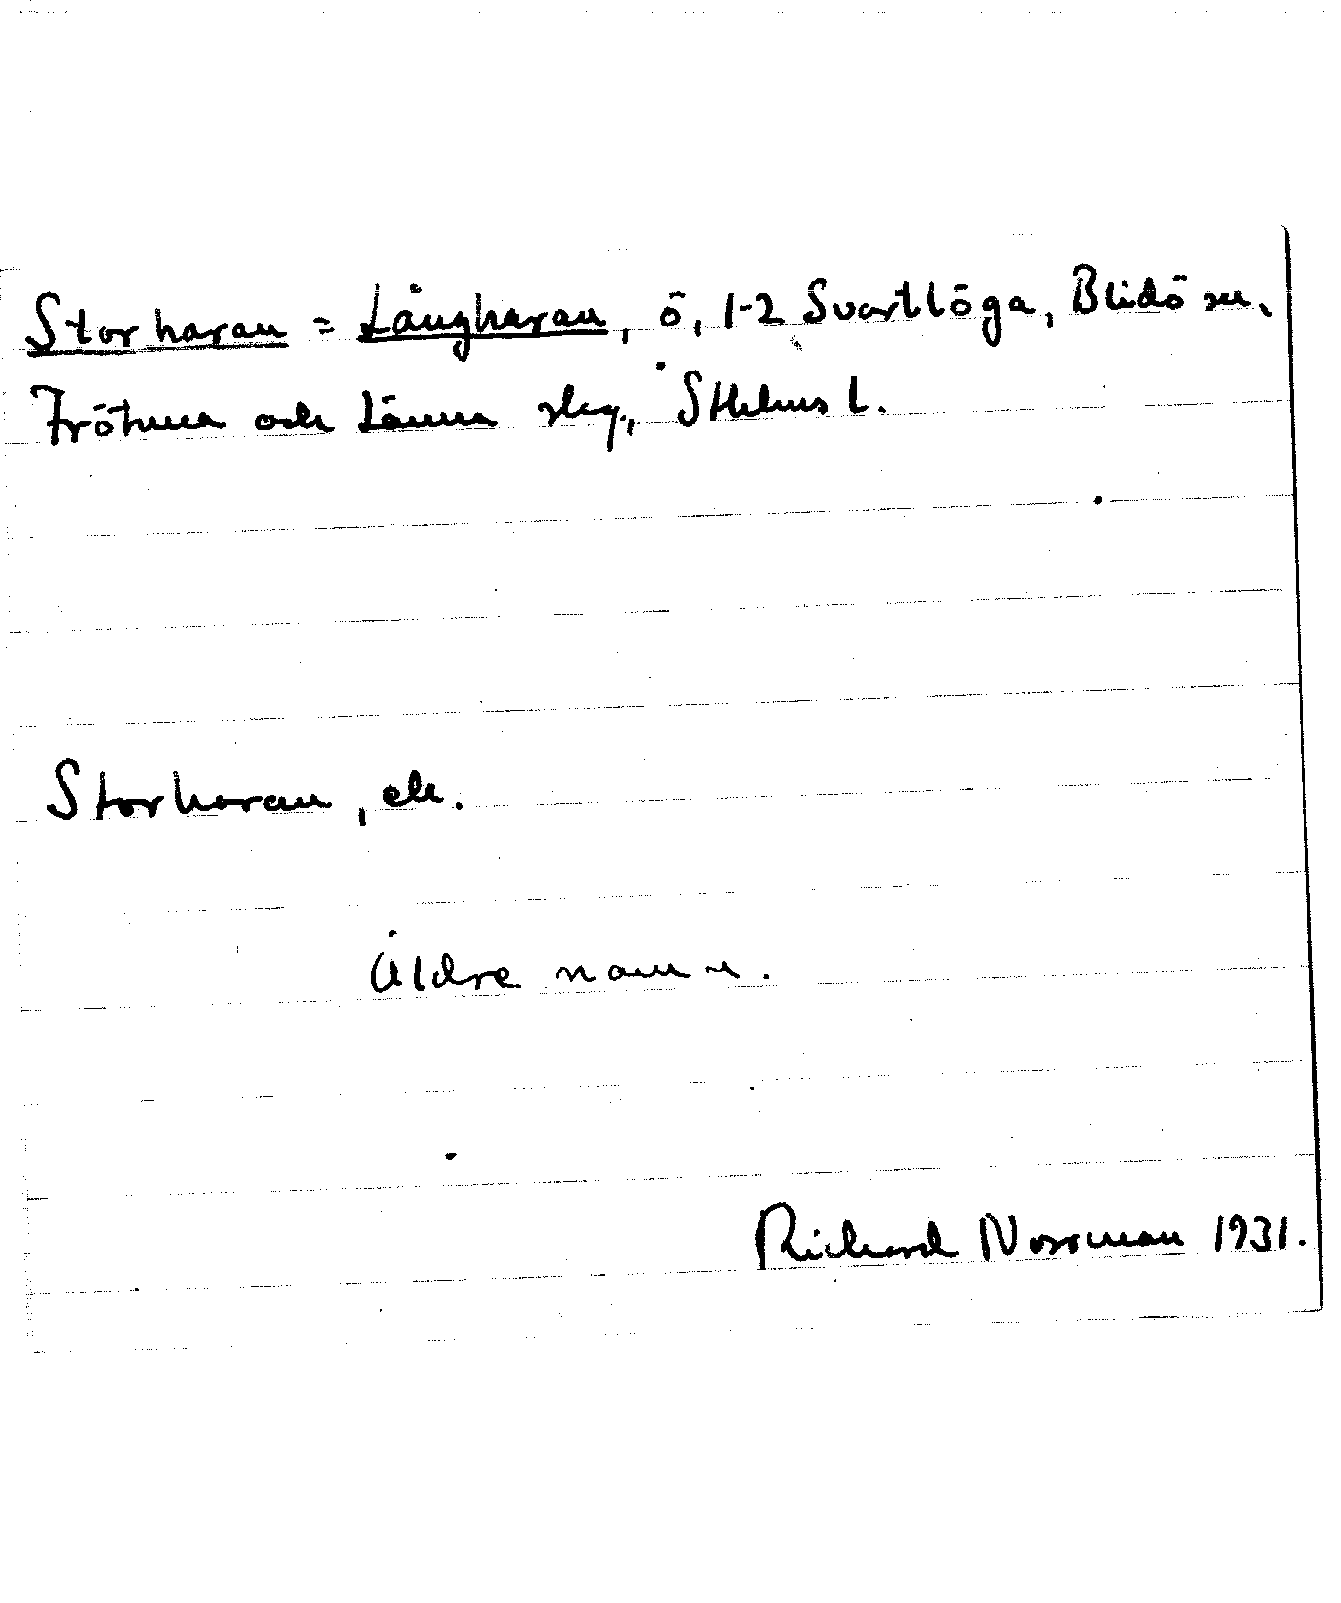 Storharan = Långharan, ö, 1-2 Svartlöga, Blidö sn,
Frötuna och Länna skg., Sthlms l.
Storharan, ek.
Äldre namn.
Richard Norrman 1931.